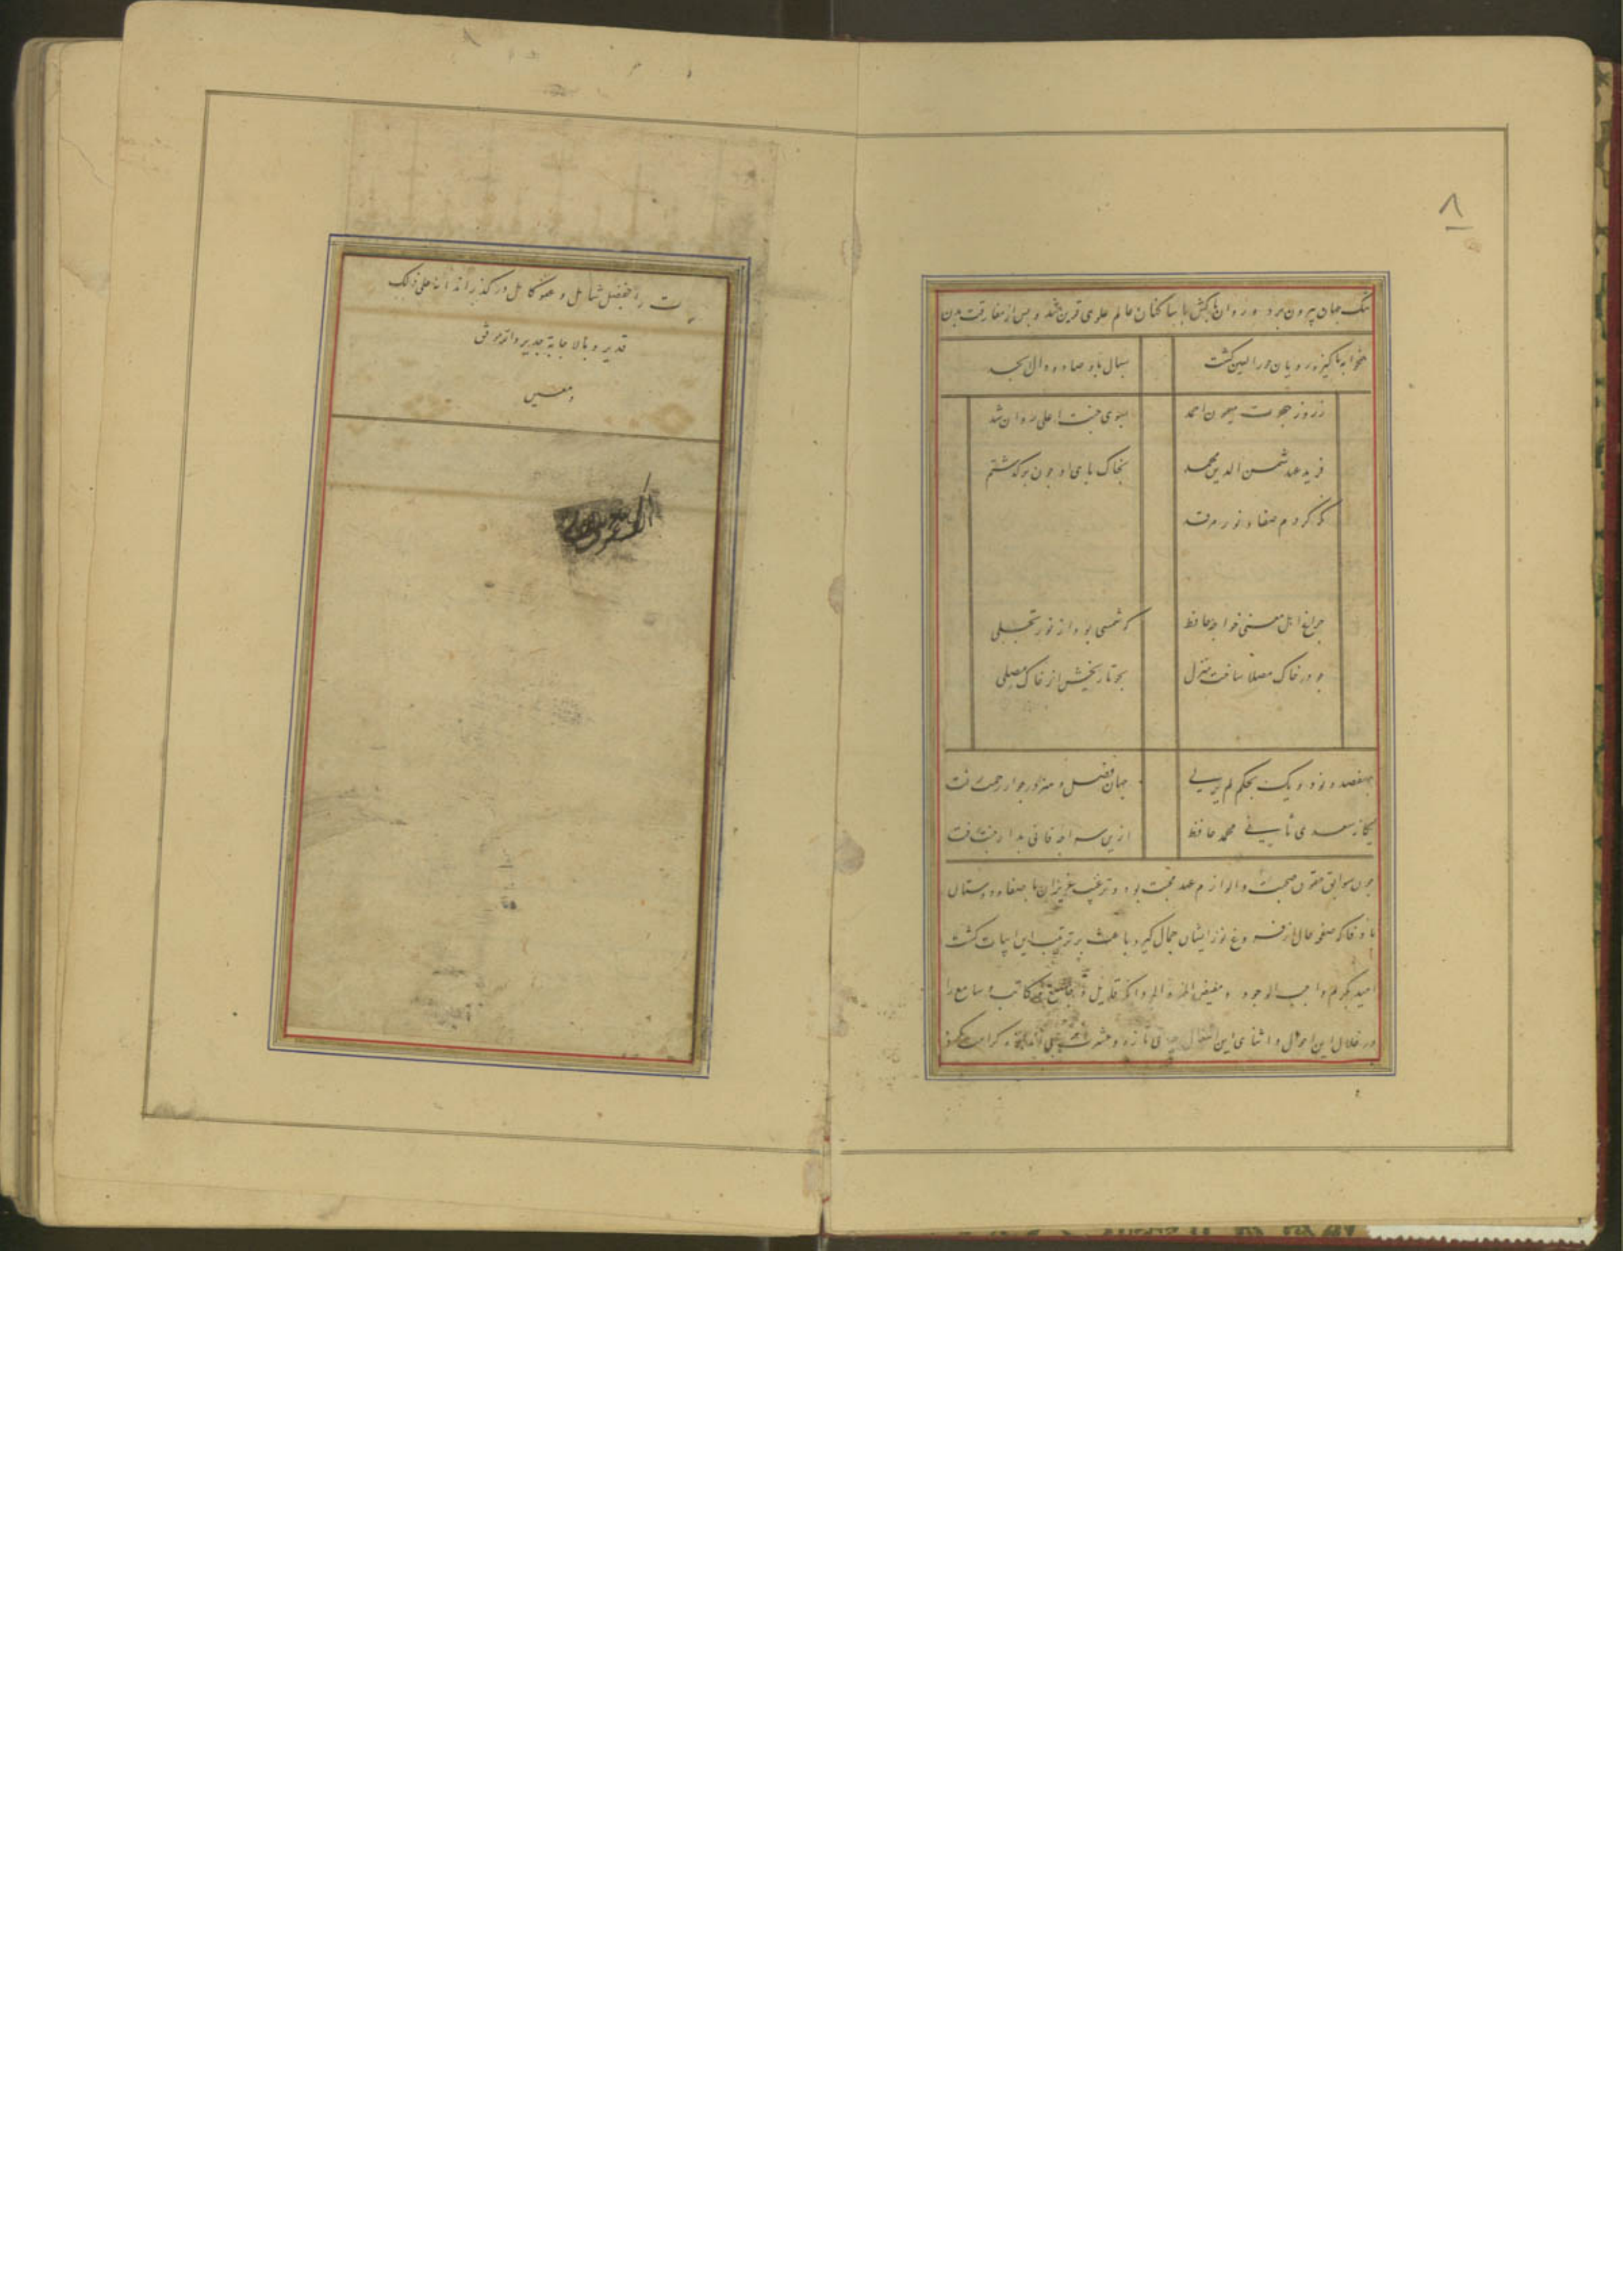 ۸
تنک جهان بیرون برد و روان پاکش با ساکنان عالم علوی قرین شد و پس از مفارقت بدن
همخوابه پاکیزه رویان حور العین کشت
بسال باو صاد و ذال ابجد
ز روز هجرت میمون احمد
بسوی جنت اعلی روان شد
فرید عهد شمس الدین محمد
بخاک پای او چون برکذشتم
نکه کردم صفا و نور مرقد
چراغ اهل معنی خواجه حافظ
که شمعی بود از نور تجلی
چو در خاک مصلا ساخت منزل
بجو تاریخش از خاک مصلی
بهفصد و نود و یک بحکم لم یزلی
جهان فضل و هنر در جوار رحمت رفت
یکانه سعدی ثانی محمد حافظ
ازین سراچه فانی بدار جنت رفت
چون سوابق حقوق صحبت و لوازم عهد محبت بود و ترغیب عزیزان با صفا و دوستان
با وفا که صفحه حال از فروغ نور ایشان جمال کیرد باعث بر ترتیب این ابیات کشت
امید بکرم واجب الوجود و مفیض الخیر و الجود آنکه قایل و جامع و کاتب و سامع را
در خلال این احوال و اثنای این اشغال حیاتی تازه و مسرتی بی اندازه کرامت کند
را بفضل شامل و عفو کامل در کذراند انه علی ذلک
قدیر و بالاجابه جدیر و الله موفق
و معین